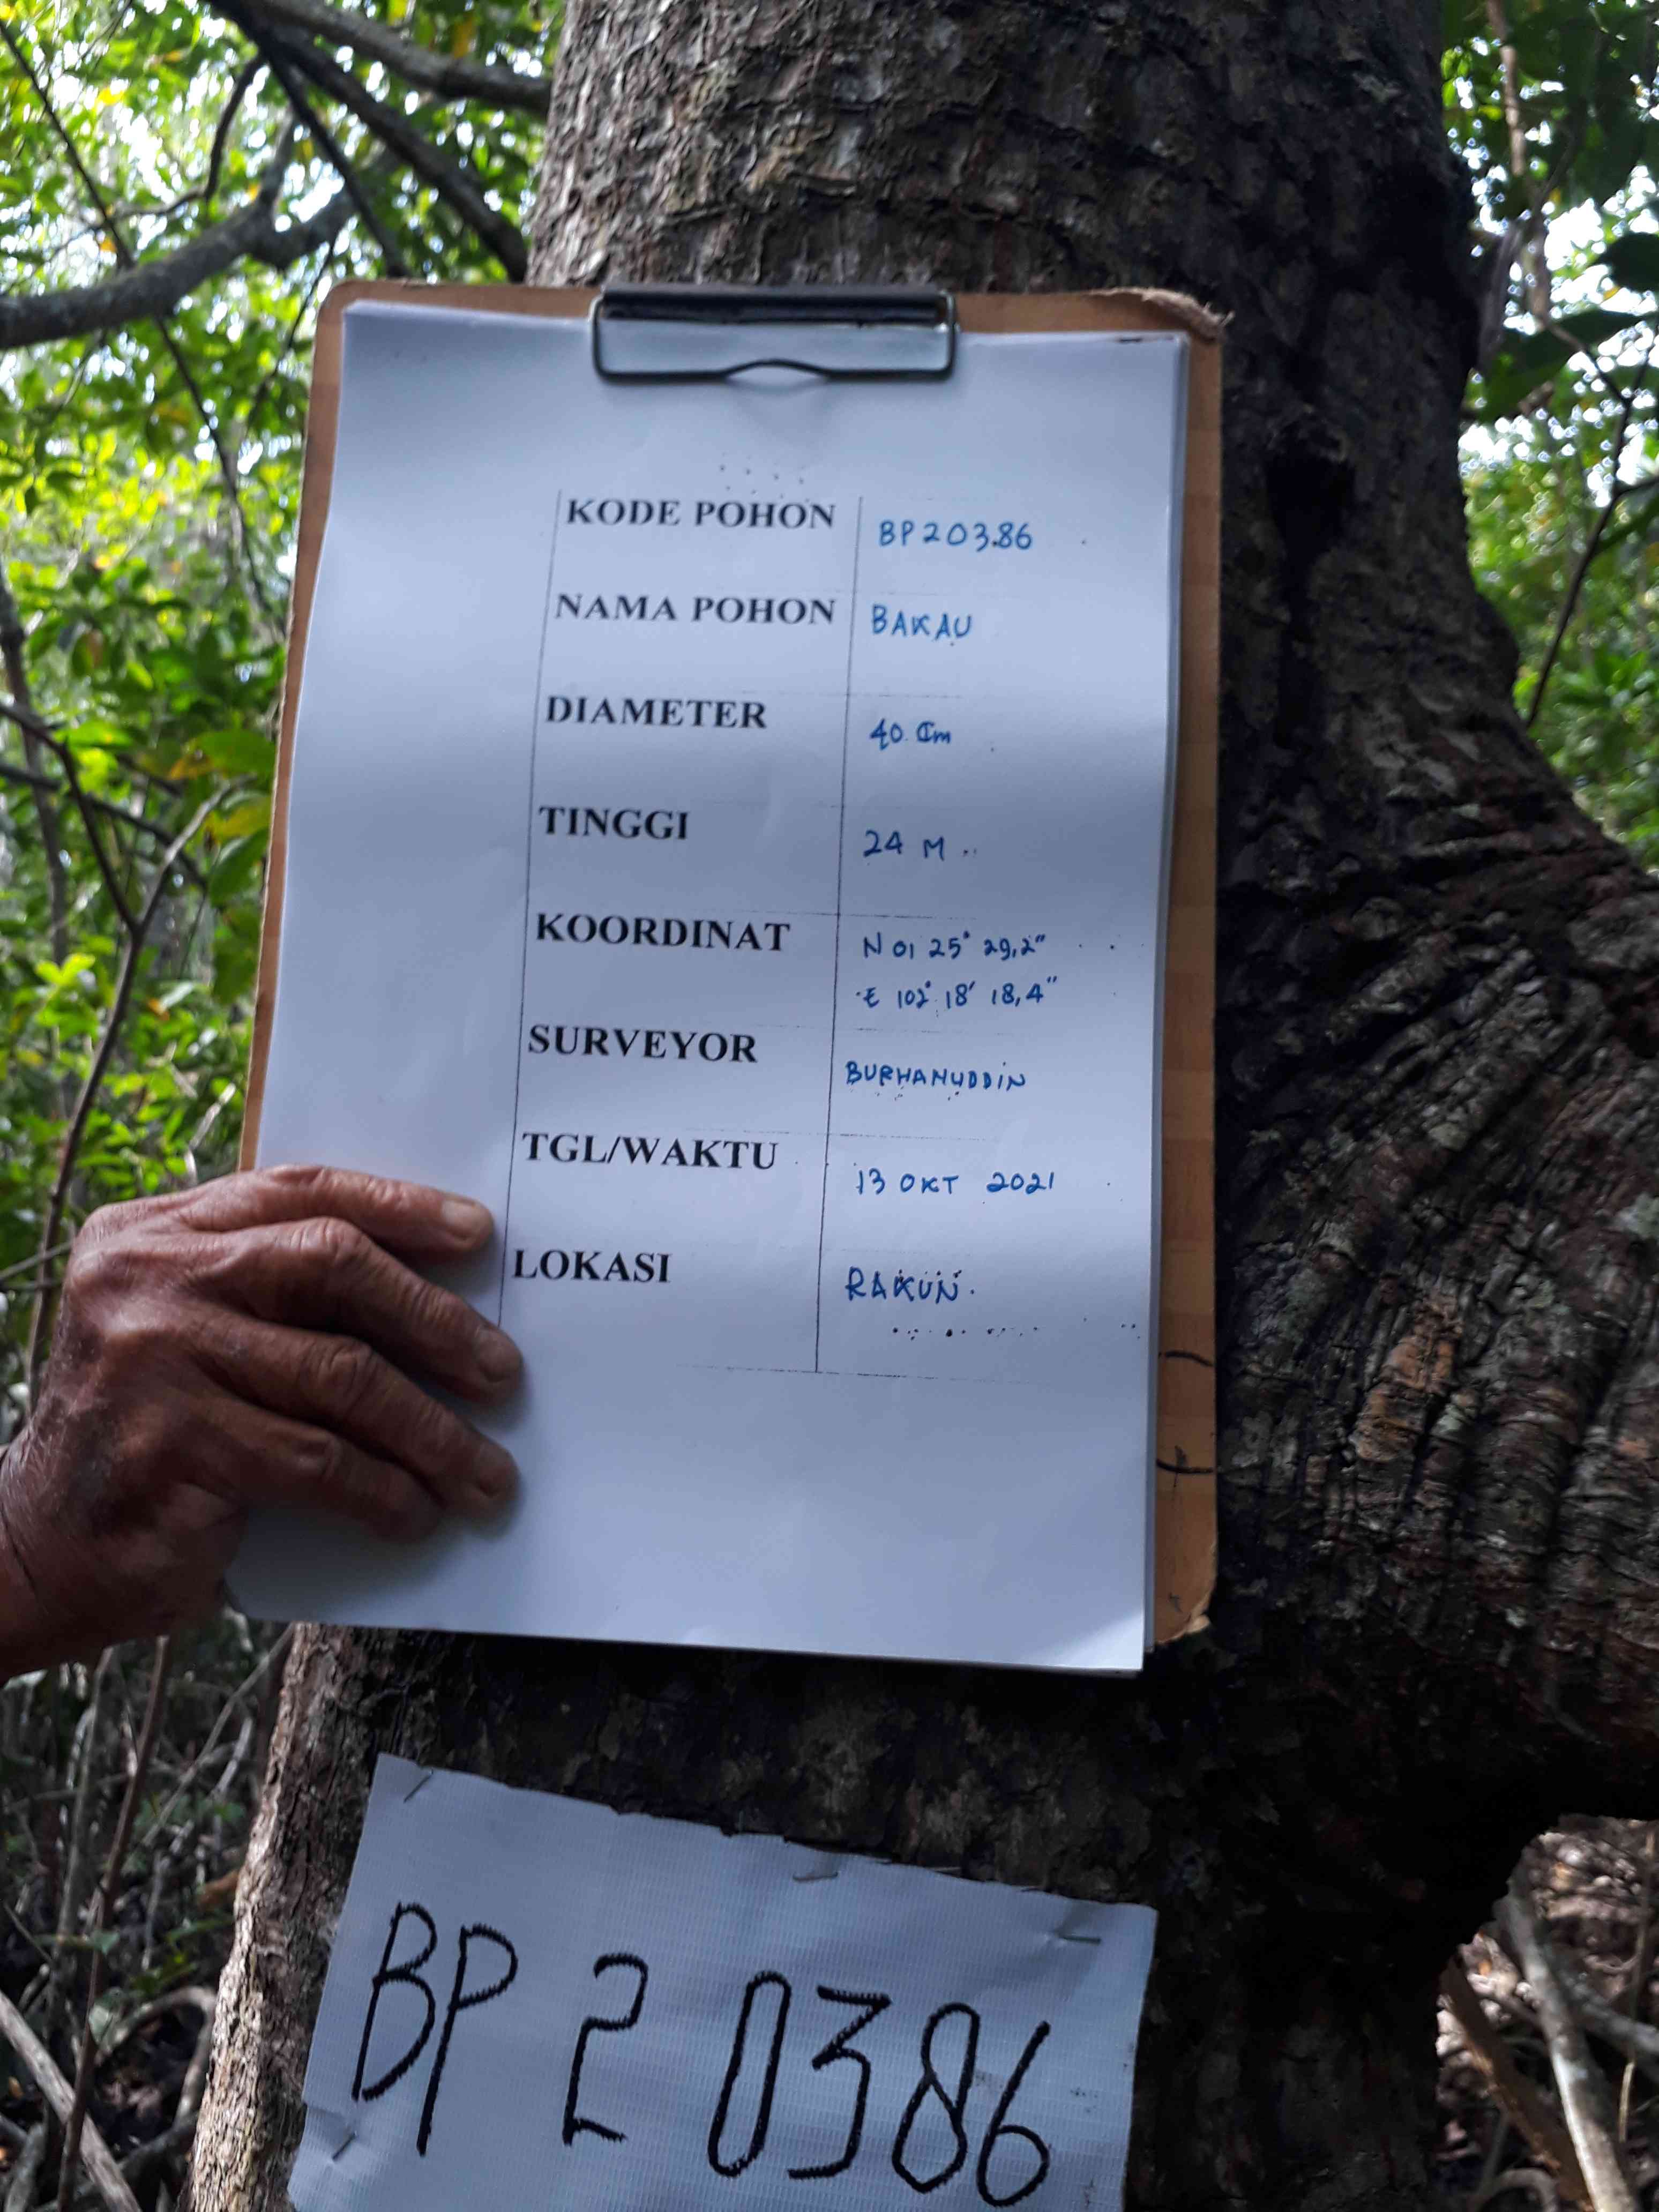 KODE POHON BP20386
NAMA POHON BAKAU
DIAMETER 40 Cm
TINGGI 24 M
KOORDINAT N 01 25° 29,2"
E 102° 18' 18,4"
SURVEYOR BURHANUDDIN
TGL/WAKTU 13 OKT 2021
LOKASI RAKUN.
BP 20386